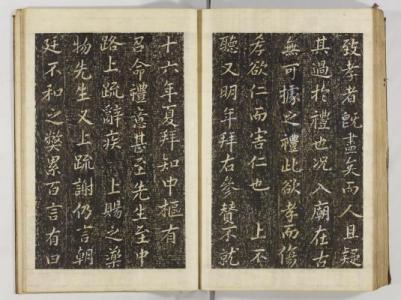 致孝者既盡矣而人且疑
其過於禮也况入廟在古
無可據之禮此欲孝而傷
孝欲仁而害仁也　上不
聽又明年拜右參贊不就
十六年夏拜知中樞有
召命禮意甚至先生至中
路上疏辭疾　上賜之藥
物先生又上疏謝仍言朝
廷不和之弊累百言有曰